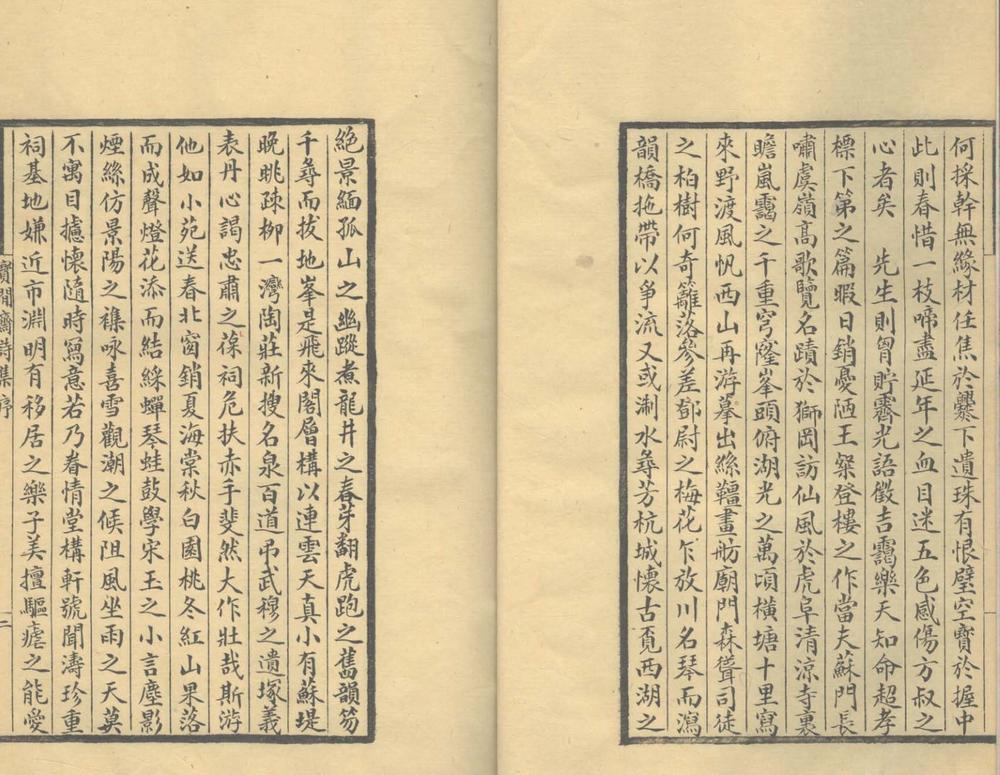 何採幹無緣材任焦於爨下遺珠有恨璧空寶於握中
此則春惜一枝啼盡延年之血目迷五色感傷方叔之
心者矣　先生則胷貯霽光語徵吉靄樂天知命超孝
標下第之篇暇日銷憂陋王粲登樓之作當夫蘇門長
嘯虞嶺高歌覽名蹟於獅岡訪仙風於虎阜清涼寺裏
瞻嵐靄之千重穹窿峯頭俯湖光之萬頃橫塘十里寫
來野渡風帆西山再游摹出絲韁畫舫廟門森聳司徒
之柏樹何奇籬落參差鄧尉之梅花乍放川名琴而瀉
韻橋拖帶以爭流又或淛水尋芳杭城懷古覓西湖之
絕景緬孤山之幽蹤煮龍井之春芽翻虎跑之舊韻笏
千尋而拔地峯是飛來閣層構以連雲天真小有蘇堤
晚眺疎柳一灣陶莊新搜名泉百道弔武穆之遺塚義
表丹心謁忠肅之葆祠危扶赤手斐然大作壯哉斯游
他如小苑送春北窗銷夏海棠秋白園桃冬紅山果落
而成聲燈花添而結綵蟬琴蛙鼓學宋玉之小言塵影
煙絲仿景陽之襍咏喜雪觀潮之候阻風坐雨之天莫
不寓目攄懷隨時寫意若乃眷情堂構軒號聞濤珍重
祠基地嫌近市淵明有移居之樂子美擅驅瘧之能愛
寶閒齋詩集序
二